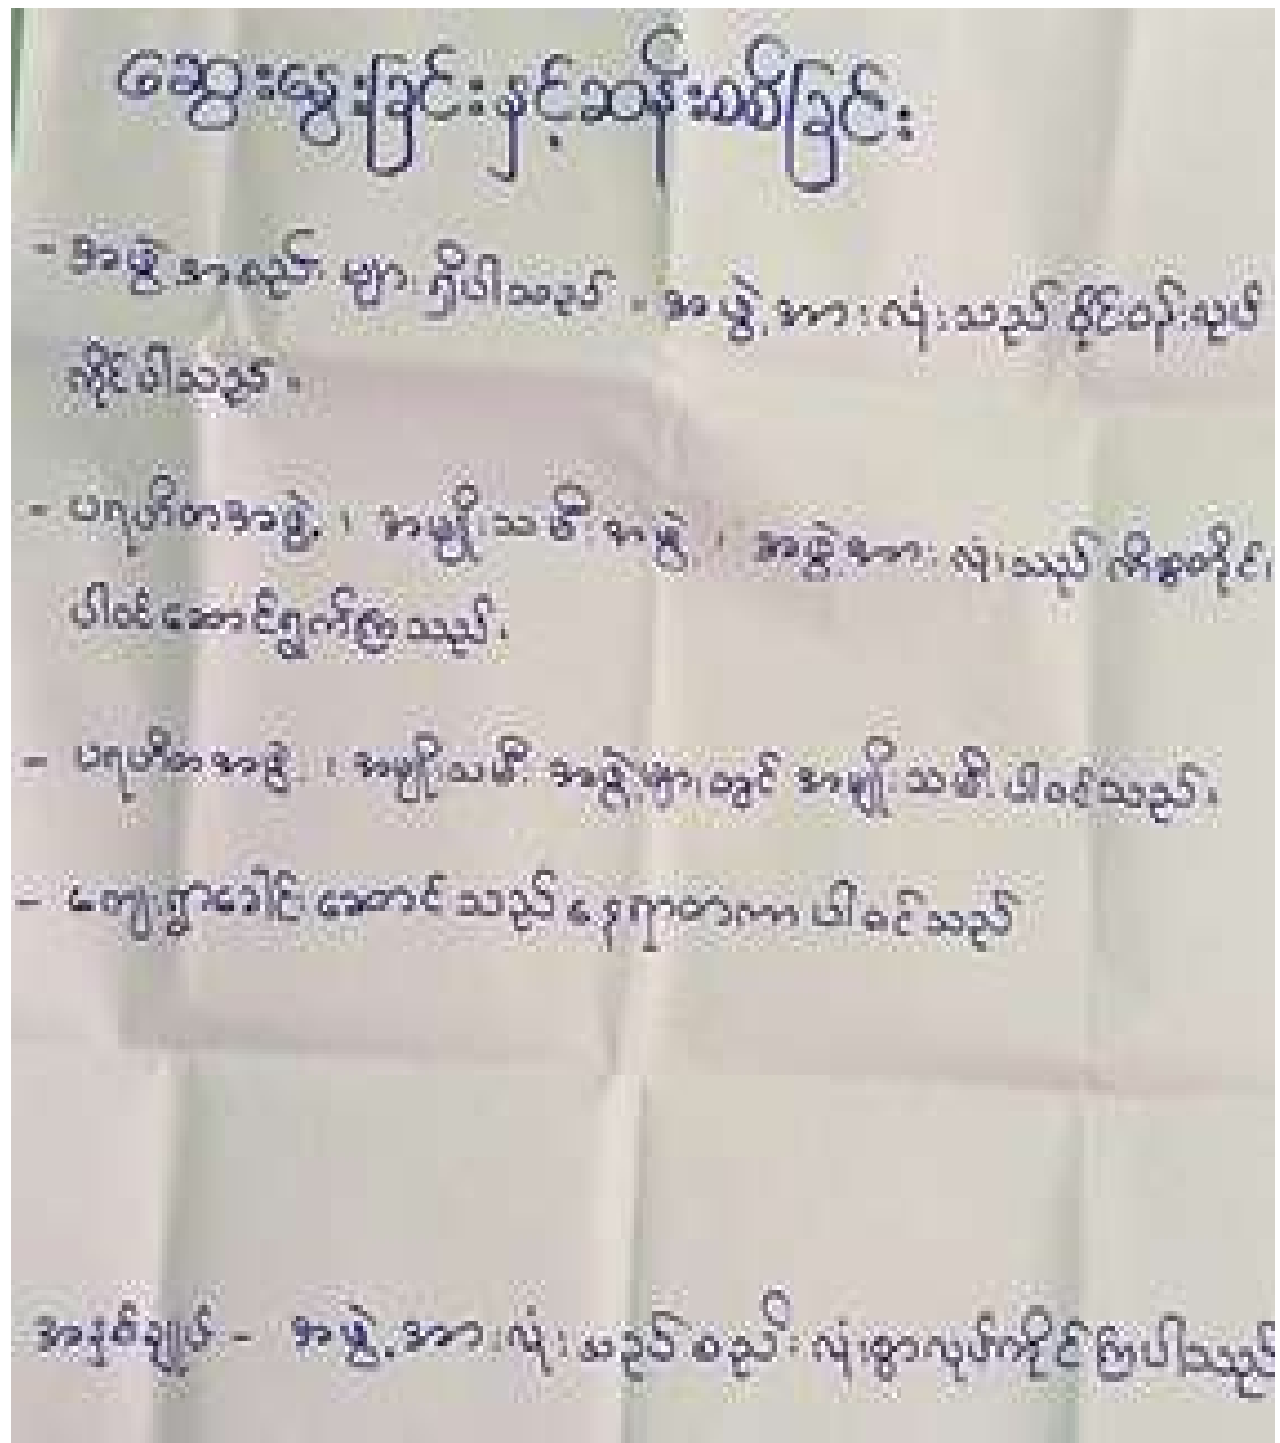 ဆွေးနွေးခြင်းနှင့်ဆန်းစစ်ခြင်း
- အဖွဲ့အစည်းများရှိပါသည်။ အဖွဲ့အားလုံးသည် ဝိုင်းဝန်းလုပ်
ကိုင်ပါသည်။
- ပရဟိတအဖွဲ့၊ အမျိုးသမီးအဖွဲ့၊ အဖွဲ့အားလုံးသည်
ပါဝင်ဆောင်ရွက်ကြသည်။
- ပရဟိတအဖွဲ့၊ အမျိုးသမီးအဖွဲ့များတွင် အမျိုးသမီးပါဝင်သည်။
- ကျေးရွာခေါင်းဆောင်သည်နေရာတကာပါဝင်သည်
အနှစ်ချုပ် - အဖွဲ့အားလုံးသည်စည်းလုံးစွာလုပ်ကိုင်ကြပါသည်